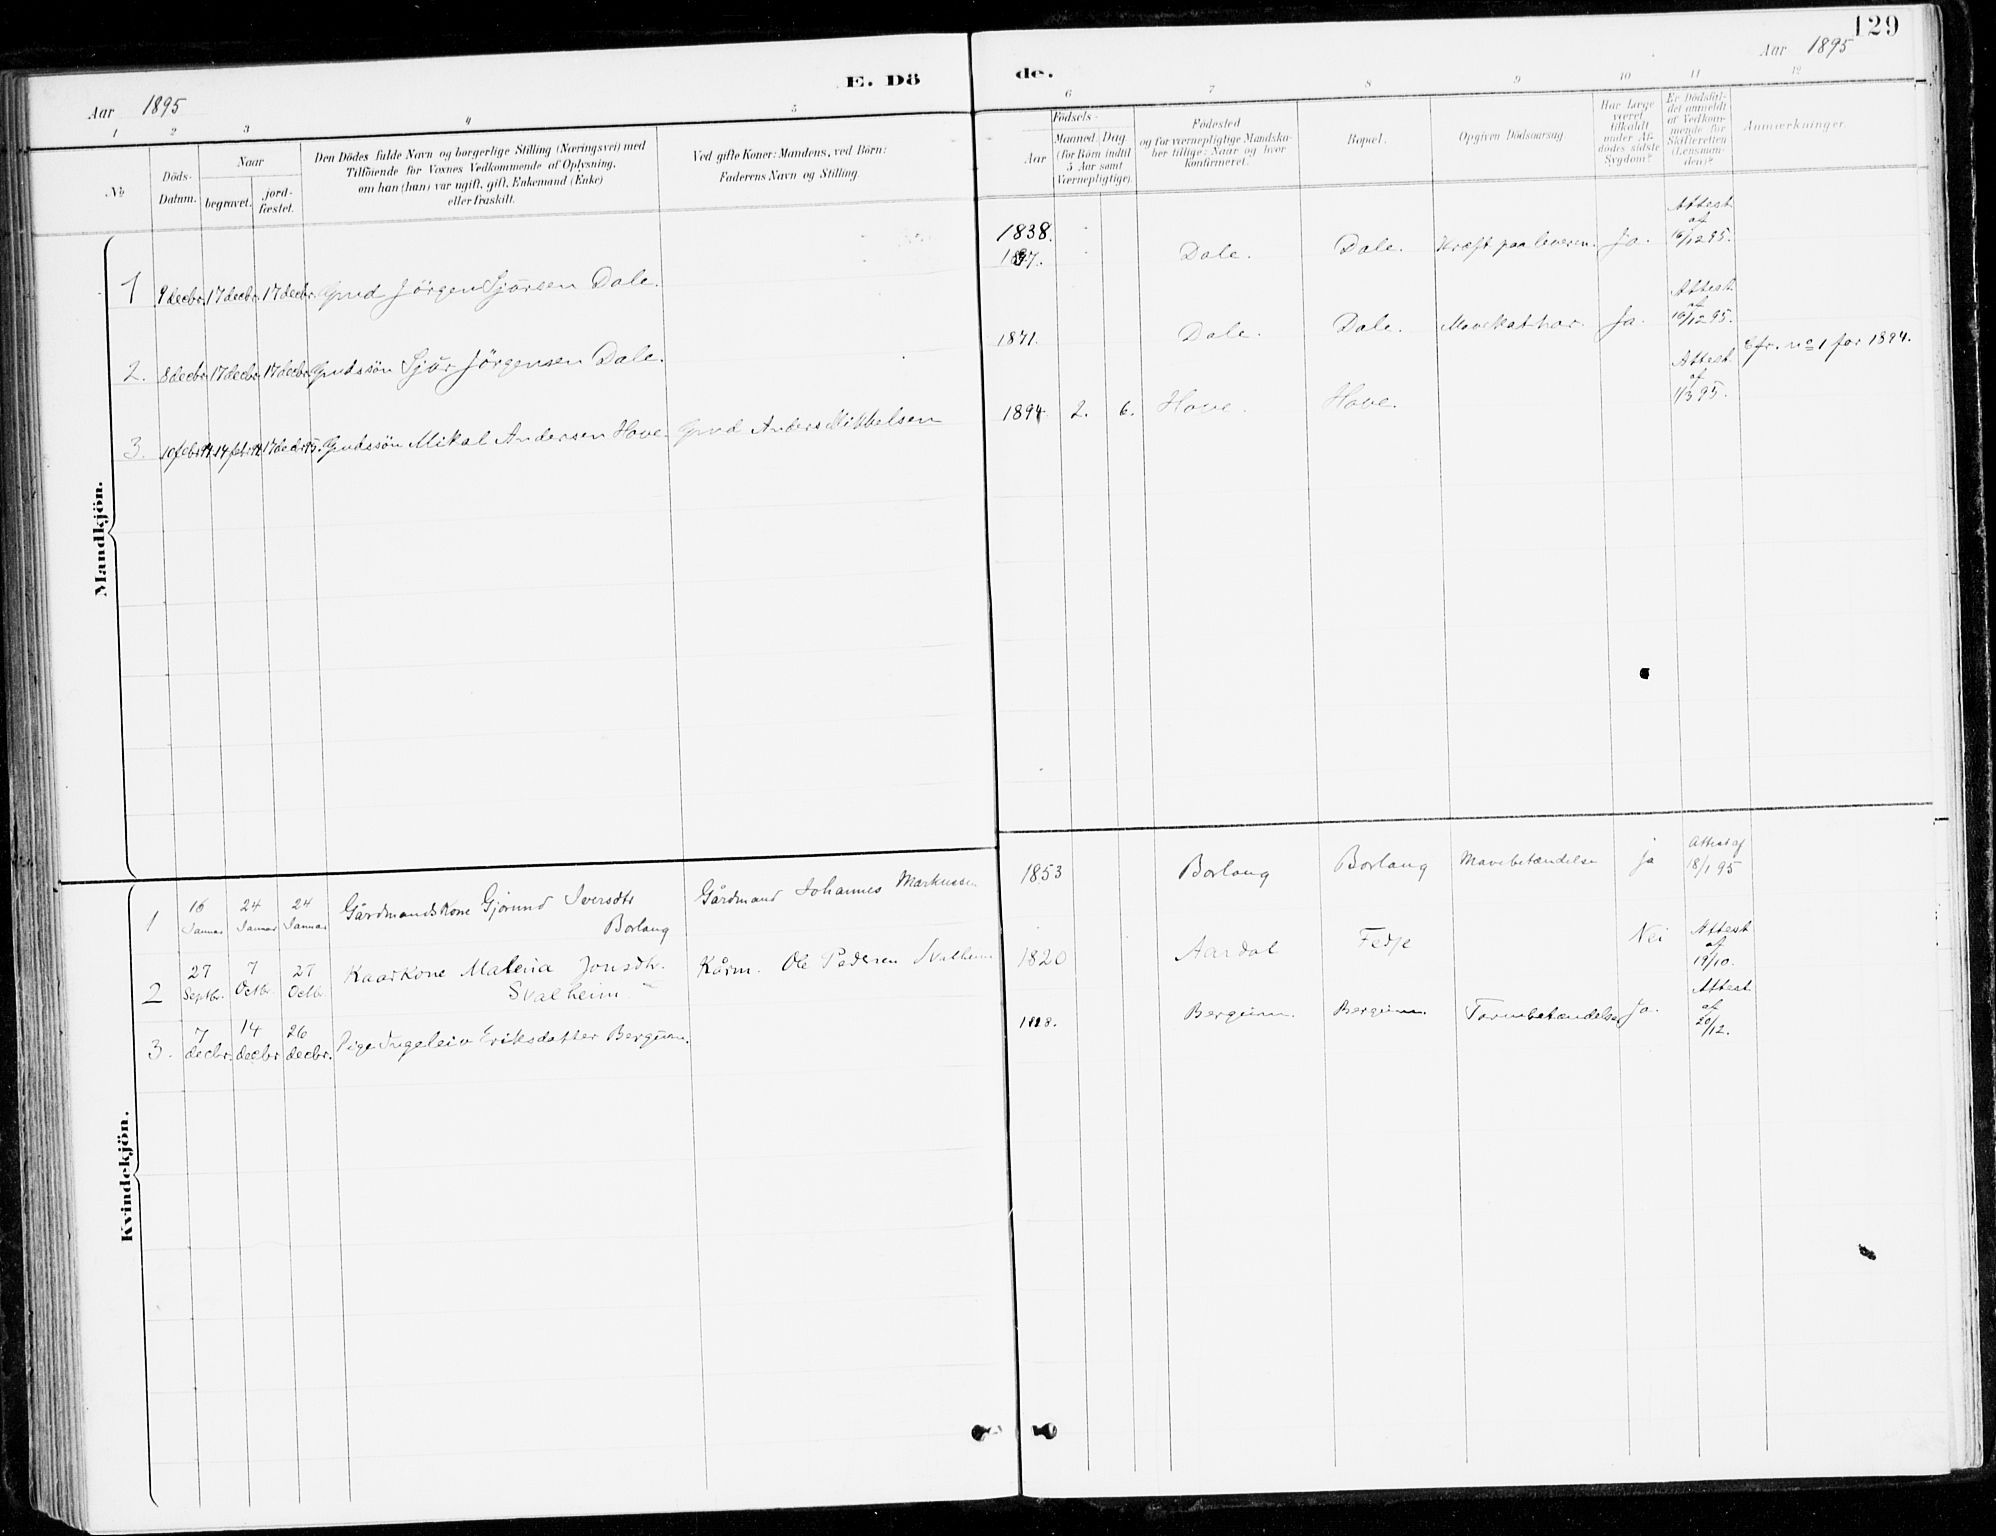 129
Aar 1895
E. Dö
de.
Aar 1895
1 2 3 4 5
6 7 8 9 10 11 12
No.
Döds-
Datum.
Naar
begravet.
jord-
fæstet.
Den Dödes fulde Navn og borgerlige Stilling (Næringsvei) med
Tilföiende for Voxnes Vedkommende af Oplysning,
om han (hun) var ugift, gift, Enkemand (Enke)
eller fraskilt.
Ved gifte Koner: Mandens, ved Börn:
Faderens Navn og Stilling.
Födsels-
Aar
Maaned Dag
(for Börn indtil
5 Aar samt
Værnepligtige).
Födested
og for værnepligtige Mandska-
ber tillige: Naar og hvor
konfirmeret.
Bopæl.
Opgiven Dödsaarsag.
Har Læge
været
tilkaldt
under Af-
dödes sidste
Sygdom?
Er Dödsfal-
det anmeldt
af Vedkom-
mende for
Skifteretten
(Lensman-
den)?
Anmærkninger.
Mandkjön.
1 9 decbr. 17 decbr. 17 decbr. Gmd Jörgen Sjursen Dale. 1838. Dale. Dale. Kræft paa leveren. Ja. Attest af 16/12 95.
2. 8 decbr. 17 decbr. 17 decbr. Gmdssön Sjur Jörgensen Dale. 1871. Dale. Dale. Mavekathar. Ja. Attest af 16/12 95.
3. 10 febr. 94 14 febr. 94 17 decbr. 95. Gmdssön Mikal Andersen Hove. Gmd Anders Mikkelsen 1894 2. 6. Hove. Hove. Attest af 1/3 95. Cfr. no 1 for 1894.
Kvindekjön.
1 16 Januar 24 Januar 24 Januar Gårdmandskone Gjörund Iversdtr Borlaug Gårdmand Johannes Markussen 1853 Borlaug Borlaug Mavebetændelse ja Attest af 18/1 95
2 27 Septbr. 7 Octbr. 27 Octbr. Kaarkone Malena Jonsdtr. Svalheim Kårm. Ole Pedersen Svalheim 1820 Aardal Fedje Nei Attest af 19/10.
3. 7 decbr. 14 decbr 26 decbr. Pige Ingeleiv Eriksdatter Bergum. Bergum. Bergum. Tarmbetændelse Ja. Attest af 20/12.